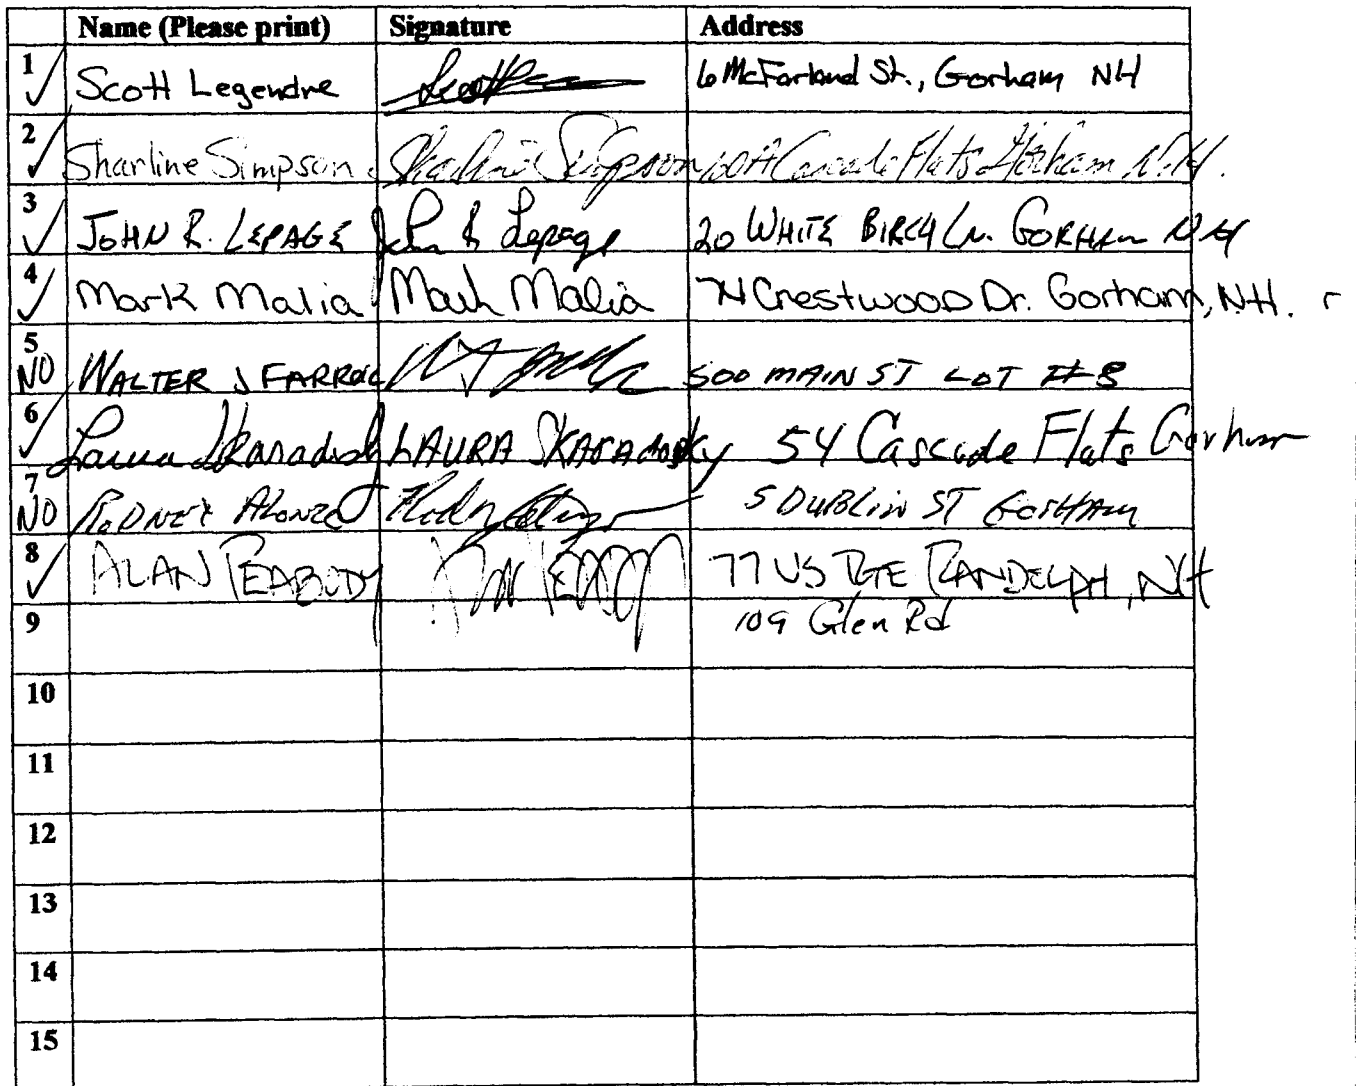 Name (Please print) Signature Address
1 ✓ Scott Legendre Scott 6 McFarland St., Gorham NH
2 ✓ Sharline Simpson Sharline Simpson 10A Cascade Flats Gorham N.H.
3 ✓ JOHN R. LEPAGE John R Lepage 20 WHITE BIRCH LN. GORHAM NH
4 ✓ Mark Malia Mark Malia 74 Crestwood Dr. Gorham, NH.
5 NO WALTER J 500 MAIN ST LOT #8
6 ✓ Laura LAURA 54 Cascade Flats Gorham
7 NO RODNEY ALONZO 5 DUBLIN ST GORHAM
8 ✓ ALAN PEABODY 77 US RTE RANDOLPH, NH
9 109 Glen Rd
10
11
12
13
14
15